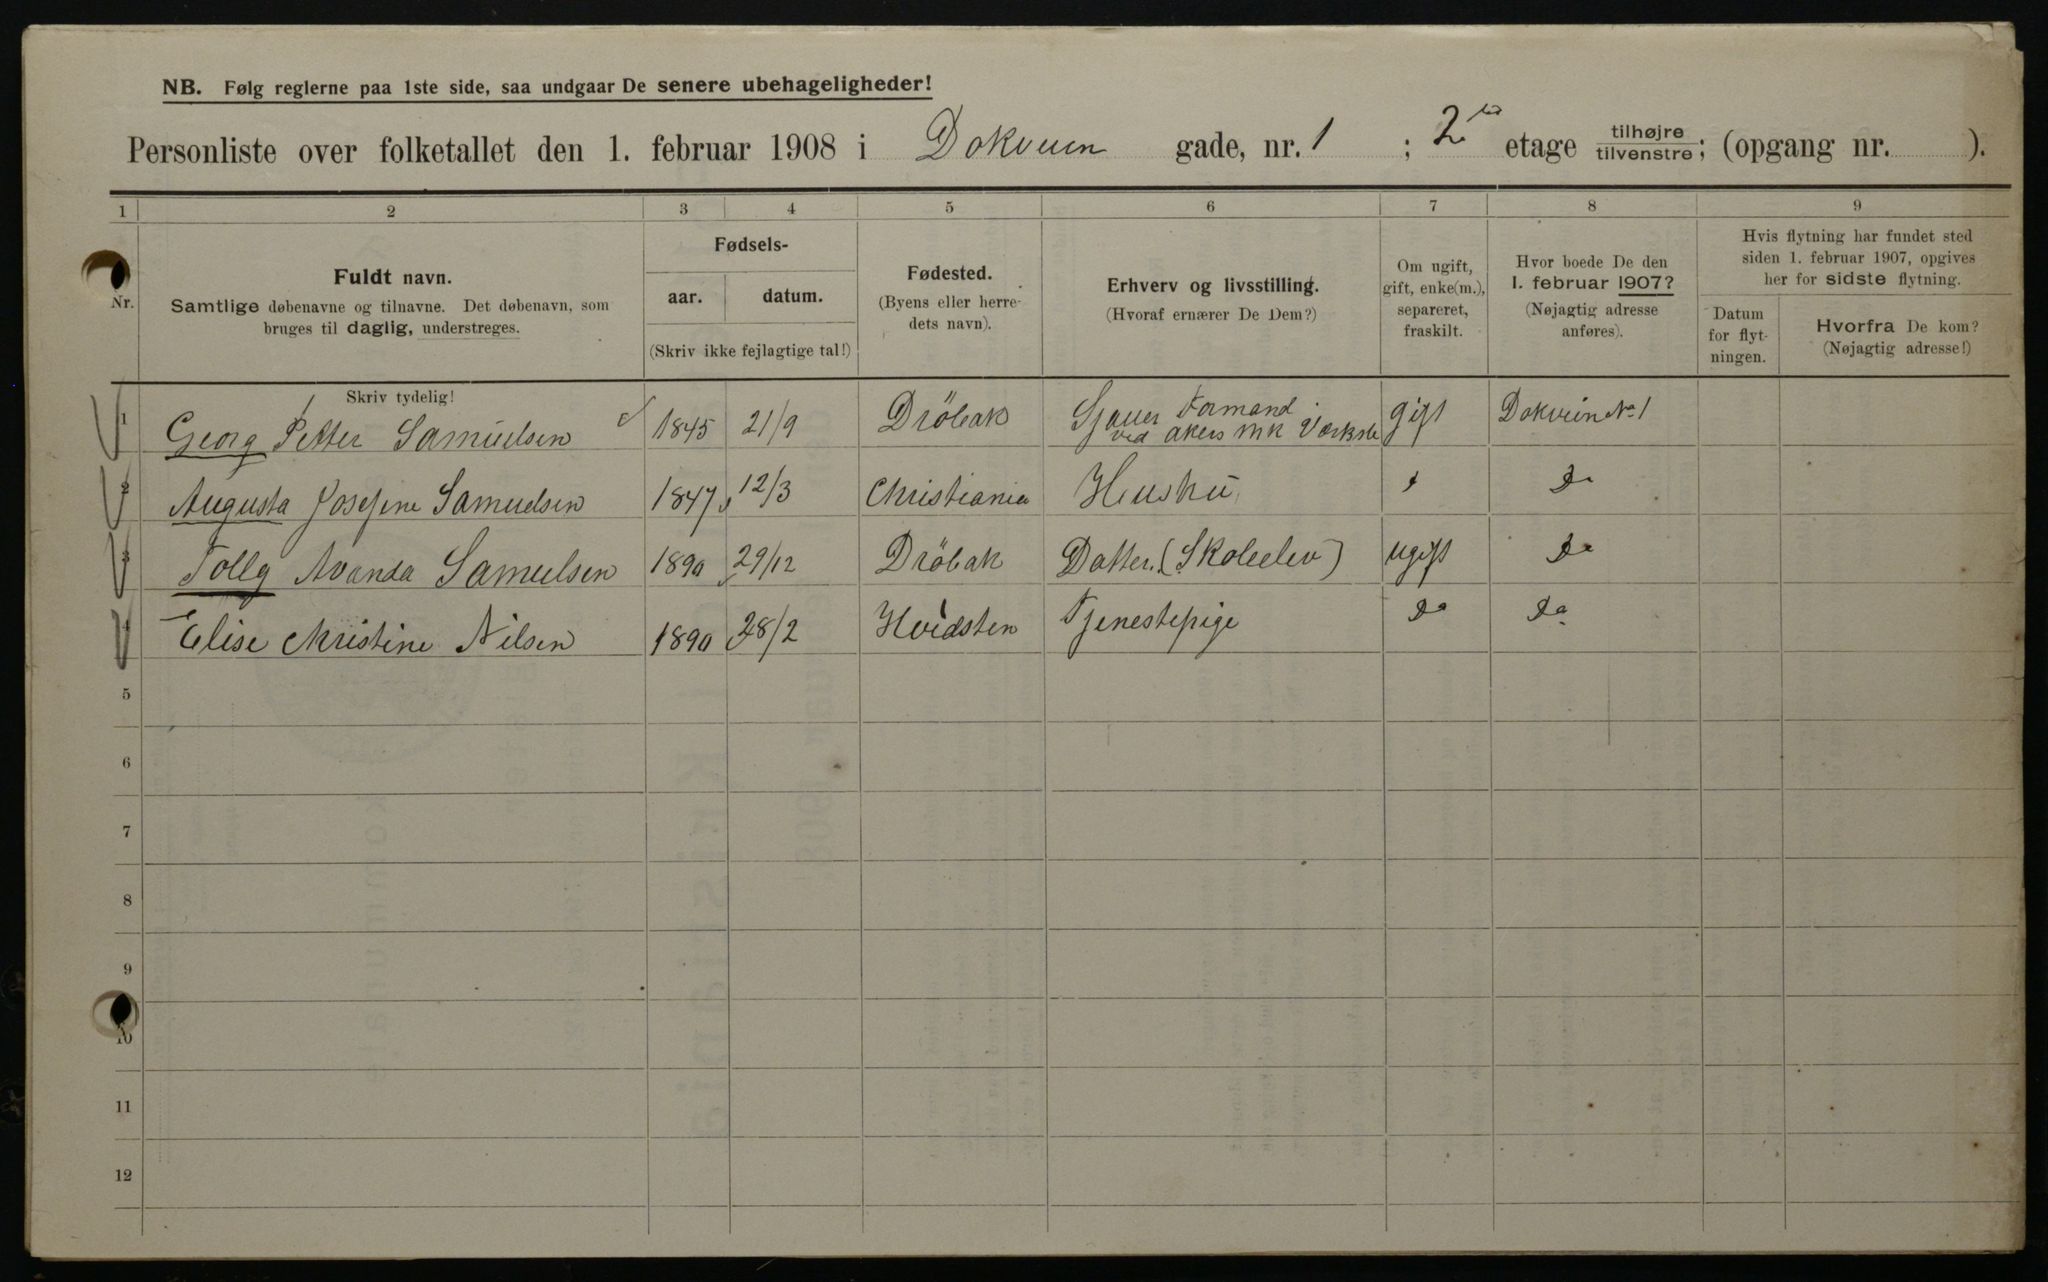 NB. Følg reglerne paa 1ste side, saa undgaar De senere ubehageligheder!
Personliste over folketallet den 1. februar 1908 i Dokveien gade, nr. 1 ; 2 etage tilhøjre/tilvenstre; (opgang nr. ).
1 2 3 4 5 6 7 8 9
Nr.
Fuldt navn.
Samtlige døbenavne og tilnavne. Det døbenavn, som
bruges til daglig, understreges.
Fødsels-
aar. datum.
(Skriv ikke fejlagtige tal!)
Fødested.
(Byens eller herre-
dets navn).
Erhverv og livsstilling.
(Hvoraf ernærer De Dem?)
Om ugift,
gift, enke(m.),
separeret,
fraskilt.
Hvor boede De den
1. februar 1907?
(Nøjagtig adresse
anføres).
Hvis flytning har fundet sted
siden 1. februar 1907, opgives
her for sidste flytning.
Datum
for flyt-
ningen.
Hvorfra De kom?
(Nøjagtig adresse!)
Skriv tydelig!
1 Georg Petter Samuelsen 1845 21/9 Dröbak Sjauer Formand ved akers mk Værkste gift Dokveien No 1
2 Augusta Josefine Samuelsen 1847 12/3 Christiania Hustru Do
3 Tolly Avanda Samuelsen 1890 29/12 Dröbak Datter. (Skoleelev) ugift Do
4 Elise Christine Nilsen 1890 28/2 Hvidsten Tjenestepige Do Do
5
6
7
8
9
10
11
12